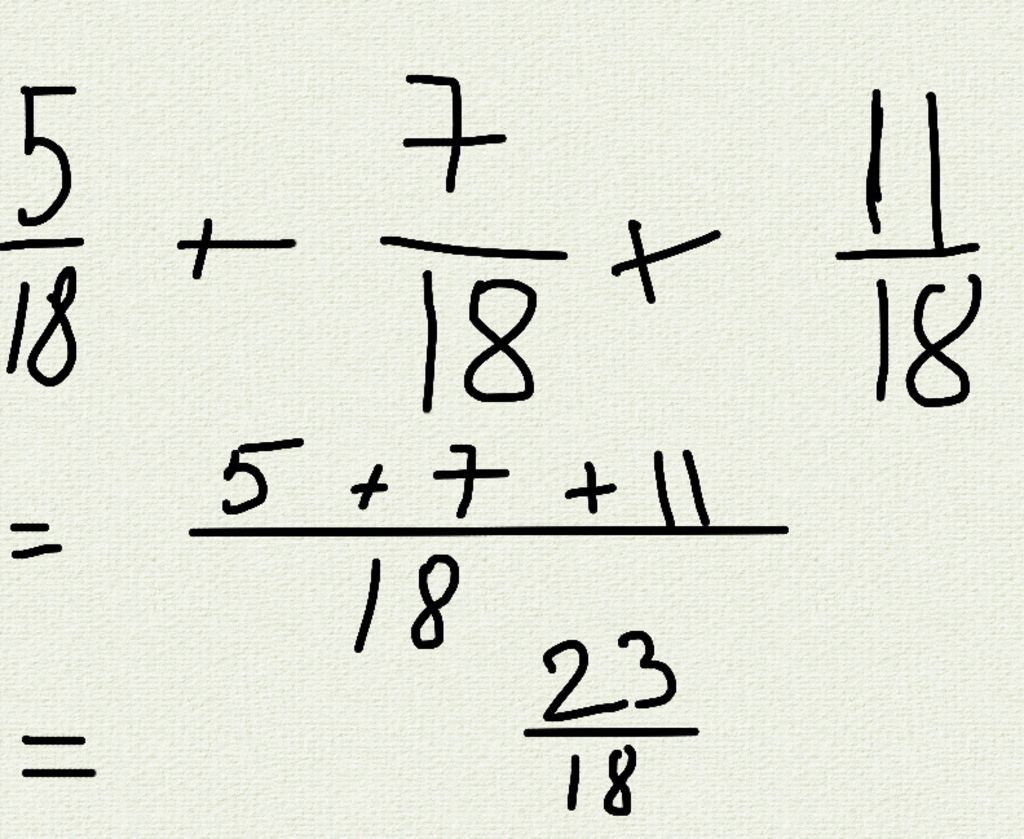 5/18 + 7/18 + 11/18
= (5 + 7 + 11)/18
= 23/18